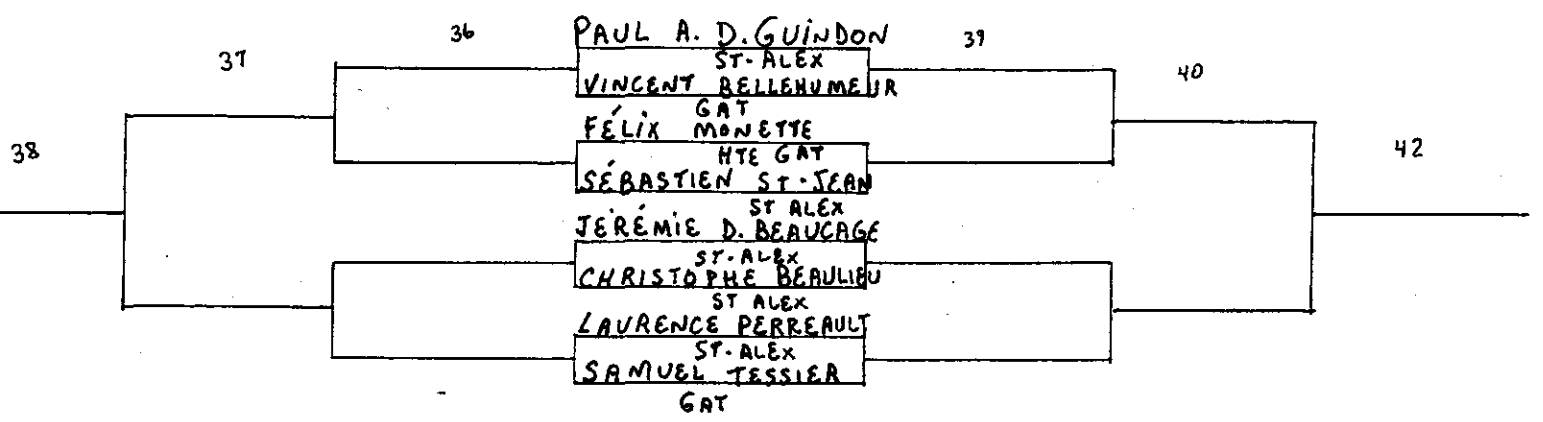 36
PAUL A. D. GUINDON
39
37
ST-ALEX
40
VINCENT BELLEHUMEUR
GAT
38
FÉLIX MONETTE
42
HTE GAT
SÉBASTIEN ST-JEAN
ST ALEX
JÉRÉMIE D. BEAUCAGE
ST-ALEX
CHRISTOPHE BEAULIEU
ST ALEX
LAURENCE PERREAULT
ST-ALEX
SAMUEL TESSIER
GAT